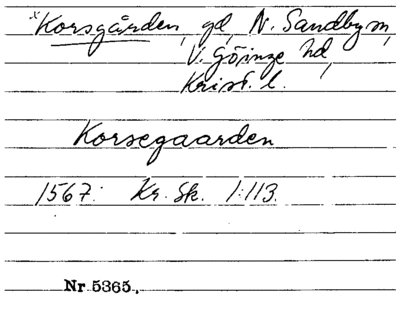 *Korsgården, gd, N. Sandby sn,
V. Göinge hd,
Krist. l.
Korsegaarden
1567: Kr. Sk. 1:113.
Nr 5365.